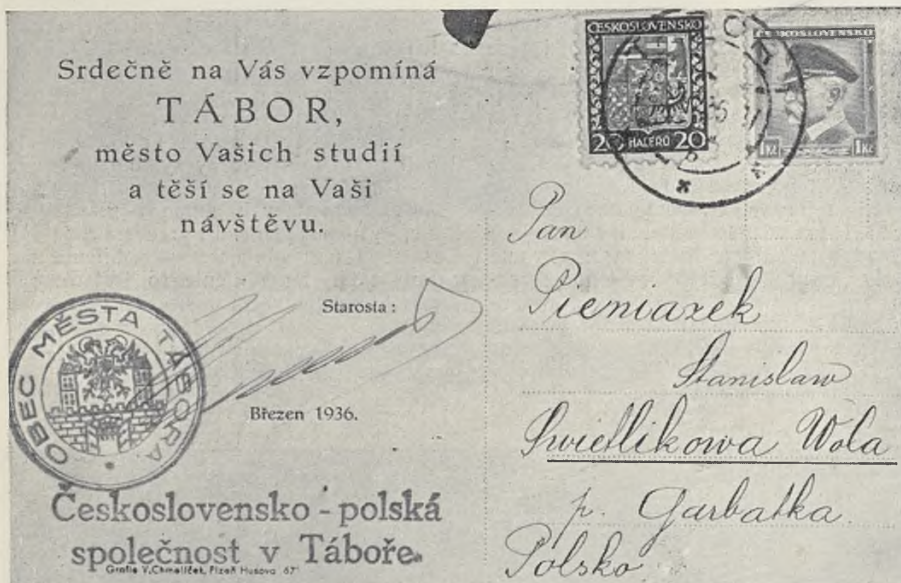 Srdečně na Vás vzpomíná
TÁBOR,
město Vašich studií
a těší se na Vaši
návštěvu.
Starosta:
OBEC MĚSTA TÁBORA
Březen 1936.
Československo - polská
společnost v Táboře
Grafia V. Chmelíček, Plzeň Husova 67
ČESKOSLOVENSKO
20 HALÉŘŮ 20
ČESKOSLOVENSKO
1Kč 1Kč
Pan
Pieniazek
Stanislaw
Swietlikowa Wola
p. Garbatka
Polsko